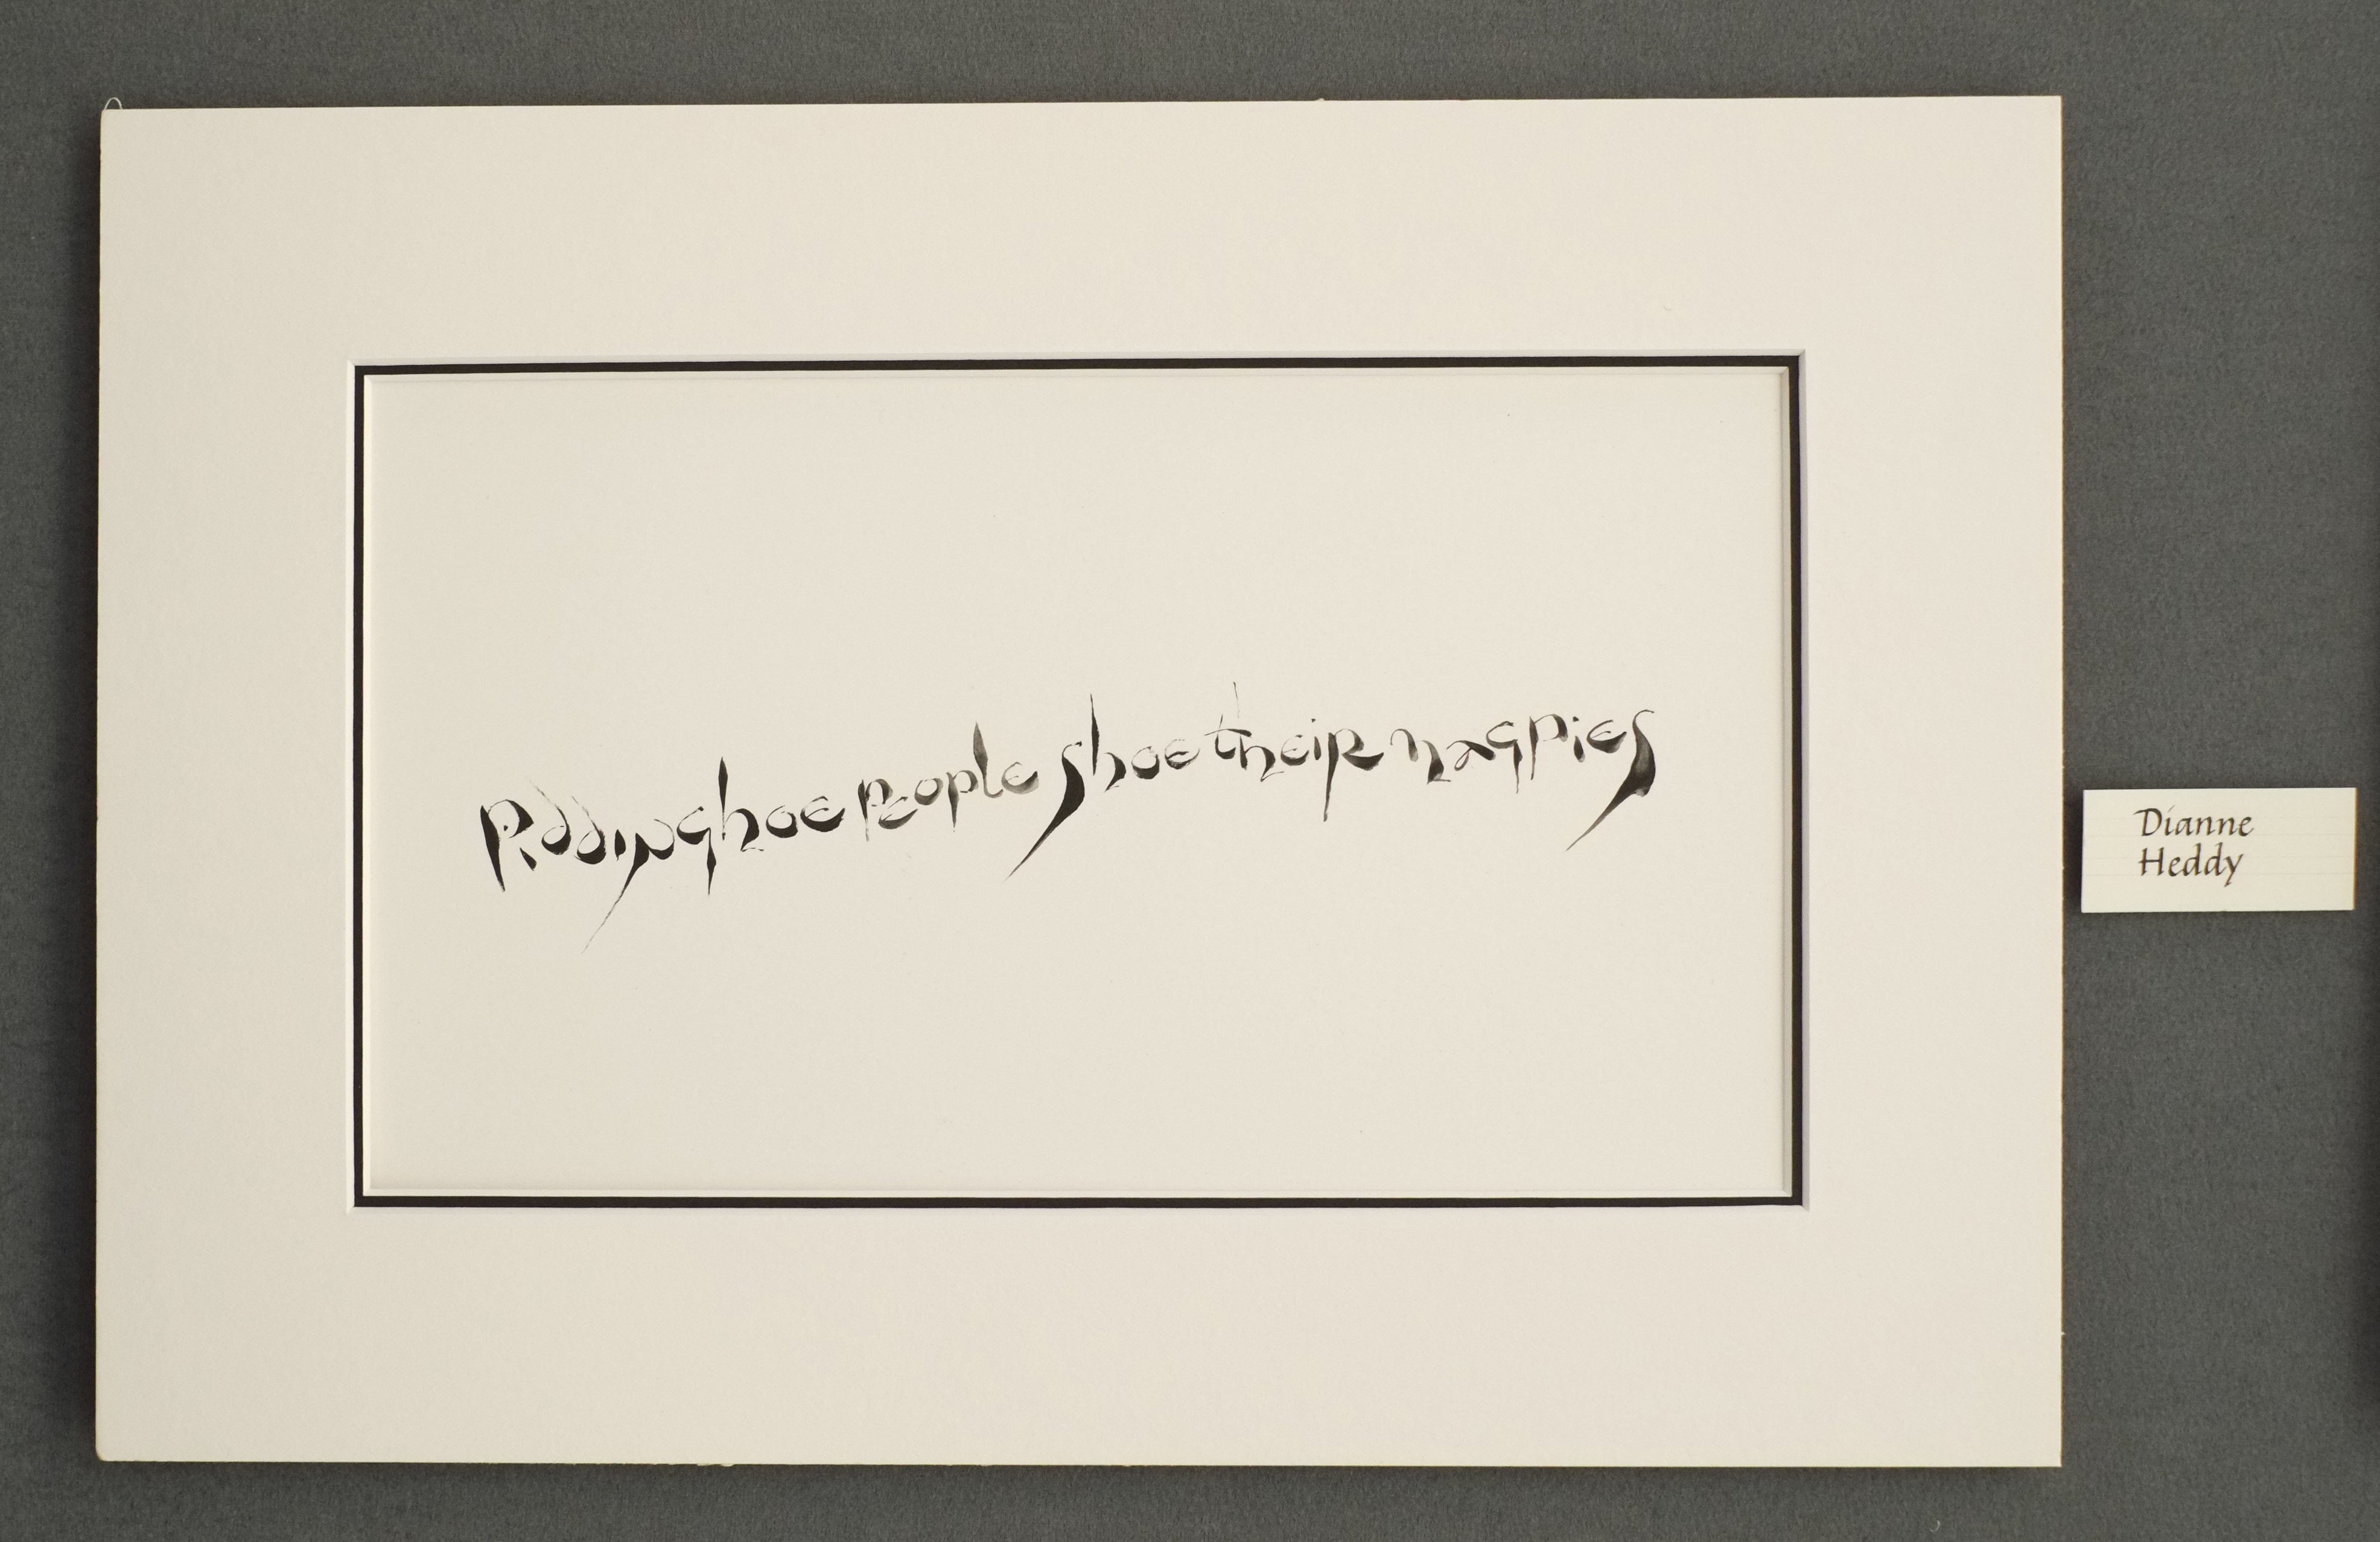 Piddinghoe people shoe their magpies
Dianne
Heddy